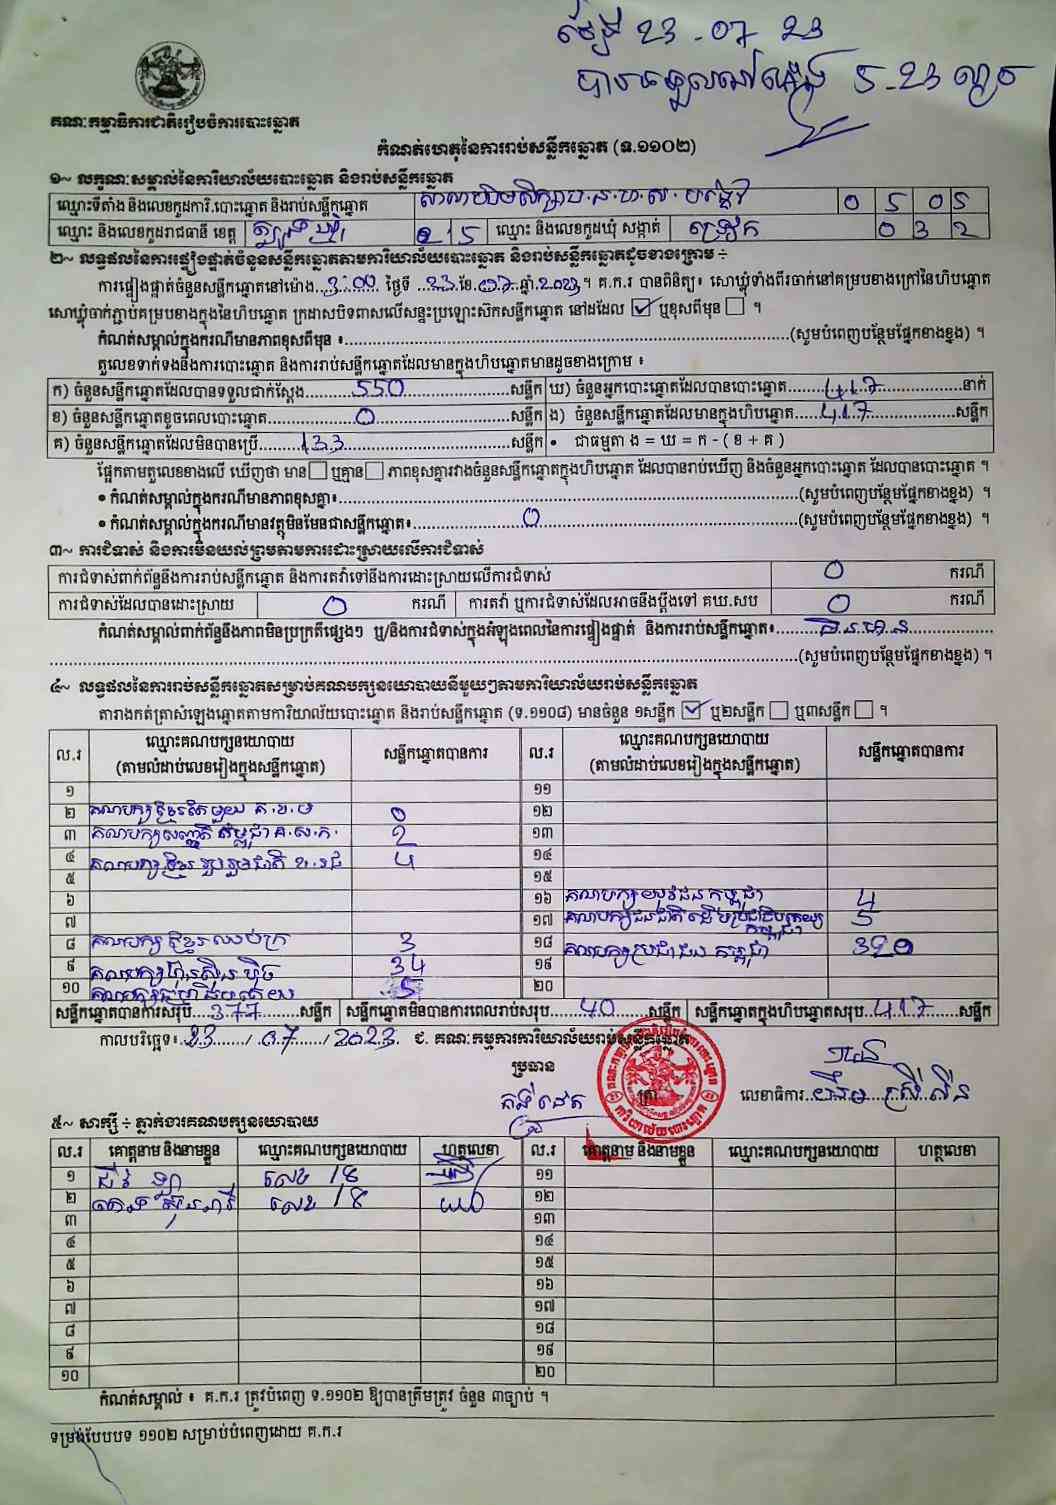 ថ្ងៃទី 23 - 07 23
5 - 23 ល្ងាច
គណៈកម្មាធិការជាតិរៀបចំការបោះឆ្នោត
កំណត់ហេតុនៃការរាប់សន្លឹកឆ្នោត (ទ.១១០២)
១~ លក្ខណៈសម្គាល់នៃការិយាល័យបោះឆ្នោត និងរាប់សន្លឹកឆ្នោត
ឈ្មោះទីតាំង និងលេខកូដការិ.បោះឆ្នោត និងរាប់សន្លឹកឆ្នោត 0 5 0 5
ឈ្មោះ និងលេខកូដរាជធានី ខេត្ត ត្បូងឃ្មុំ 2 5 ឈ្មោះ និងលេខកូដឃុំ សង្កាត់ 0 3 2
២~ លទ្ធផលនៃការផ្ទៀងផ្ទាត់ចំនួនសន្លឹកឆ្នោតតាមការិយាល័យបោះឆ្នោត និងរាប់សន្លឹកឆ្នោតដូចខាងក្រោម ÷
ការផ្ទៀងផ្ទាត់ចំនួនសន្លឹកឆ្នោតនៅម៉ោង...3:00... ថ្ងៃទី ...23...ខែ...07...ឆ្នាំ.2023.។ គ.ក.រ បានពិនិត្យ៖ សោឃ្លុំទាំងពីរចាក់នៅគម្របខាងក្រៅនៃហិបឆ្នោត
សោឃ្លុំចាក់ភ្ជាប់គម្របខាងក្នុងនៃហិបឆ្នោត ក្រដាសបិទពាសលើសន្ទះប្រឡោះស៊កសន្លឹកឆ្នោត នៅដដែល ☑ ឬខុសពីមុន ☐ ។
កំណត់សម្គាល់ក្នុងករណីខុសពីមុន ៖...(សូមបំពេញបន្ថែមផ្នែកខាងខ្នង) ។
តួលេខទាក់ទងនឹងការបោះឆ្នោត និងការរាប់សន្លឹកឆ្នោតដែលមានក្នុងហិបឆ្នោតមានដូចខាងក្រោម ៖
ក) ចំនួនសន្លឹកឆ្នោតដែលបានទទួលជាក់ស្តែង...550...សន្លឹក ឃ) ចំនួនអ្នកបោះឆ្នោតដែលបានបោះឆ្នោត...417...នាក់
ខ) ចំនួនសន្លឹកឆ្នោតខូចពេលបោះឆ្នោត...0...សន្លឹក ង) ចំនួនសន្លឹកឆ្នោតដែលមានក្នុងហិបឆ្នោត...417...សន្លឹក
គ) ចំនួនសន្លឹកឆ្នោតដែលមិនបានប្រើ...133...សន្លឹក • ជាធម្មតា ង = ឃ = ក - ( ខ + គ )
ផ្អែកតាមតួលេខខាងលើ ឃើញថា មាន ☐ ឬគ្មាន ☐ ភាពខុសគ្នារវាងចំនួនសន្លឹកឆ្នោតក្នុងហិបឆ្នោត ដែលបានរាប់ឃើញ និងចំនួនអ្នកបោះឆ្នោត ដែលបានបោះឆ្នោត ។
• កំណត់សម្គាល់ក្នុងករណីមានភាពខុសគ្នា៖...(សូមបំពេញបន្ថែមផ្នែកខាងខ្នង) ។
• កំណត់សម្គាល់ក្នុងករណីមានវត្ថុមិនមែនជាសន្លឹកឆ្នោត៖...0...(សូមបំពេញបន្ថែមផ្នែកខាងខ្នង) ។
៣~ ការជំទាស់ និងការមិនយល់ព្រមតាមការដោះស្រាយលើការជំទាស់
ការជំទាស់ពាក់ព័ន្ធនឹងការរាប់សន្លឹកឆ្នោត និងការតវ៉ាទៅនឹងការដោះស្រាយលើការជំទាស់ 0 ករណី
ការជំទាស់ដែលបានដោះស្រាយ 0 ករណី ការតវ៉ា ឬការជំទាស់ដែលអាចនឹងប្តឹងទៅ គឃ.សប 0 ករណី
កំណត់សម្គាល់ពាក់ព័ន្ធនឹងភាពមិនប្រក្រតីផ្សេងៗ ឬ/និងការជំទាស់ក្នុងអំឡុងពេលនៃការផ្ទៀងផ្ទាត់ និងការរាប់សន្លឹកឆ្នោត៖...មិនមាន...
...(សូមបំពេញបន្ថែមផ្នែកខាងខ្នង) ។
៤~ លទ្ធផលនៃការរាប់សន្លឹកឆ្នោតសម្រាប់គណបក្សនយោបាយនីមួយៗតាមការិយាល័យរាប់សន្លឹកឆ្នោត
តារាងកត់ត្រាសំឡេងឆ្នោតតាមការិយាល័យបោះឆ្នោត និងរាប់សន្លឹកឆ្នោត (ទ.១១០៨) មានចំនួន ១សន្លឹក ☑ ឬ២សន្លឹក ☐ ឬ៣សន្លឹក ☐ ។
ល.រ ឈ្មោះគណបក្សនយោបាយ (តាមលំដាប់លេខរៀងក្នុងសន្លឹកឆ្នោត) សន្លឹកឆ្នោតបានការ ល.រ ឈ្មោះគណបក្សនយោបាយ (តាមលំដាប់លេខរៀងក្នុងសន្លឹកឆ្នោត) សន្លឹកឆ្នោតបានការ
១ ១១
២ គណបក្សខ្មែរតែមួយ គ.ខ.ម 0 ១២
៣ គណបក្សសញ្ជាតិកម្ពុជា គ.ស.ក. 2 ១៣
៤ គណបក្សខ្មែររួបរួមជាតិ ខ.រជ 4 ១៤
៥ ១៥
៦ ១៦ គណបក្សយុវជនកម្ពុជា 4
៧ ១៧ គណបក្សជនជាតិដើមប្រជាធិបតេយ្យកម្ពុជា 5
៨ គណបក្សខ្មែរឈប់ក្រ 3 ១៨ គណបក្សប្រជាជនកម្ពុជា 320
៩ គណបក្សហ៊្វុនស៊ិនប៉ិច 34 ១៩
១០ 5 ២០
សន្លឹកឆ្នោតបានការសរុប...377...សន្លឹក សន្លឹកឆ្នោតមិនបានការពេលរាប់សរុប...40...សន្លឹក សន្លឹកឆ្នោតក្នុងហិបឆ្នោតសរុប...417...សន្លឹក
កាលបរិច្ឆេទ៖..23...../.07...../2023. ជ. គណៈកម្មការការិយាល័យរាប់សន្លឹកឆ្នោត
ប្រធាន
ត្រា
លេខាធិការ..យឹម....ស្រី..លីន
៥~ សាក្សី ÷ ភ្នាក់ងារគណបក្សនយោបាយ
ល.រ គោត្តនាម និងនាមខ្លួន ឈ្មោះគណបក្សនយោបាយ ហត្ថលេខា ល.រ គោត្តនាម និងនាមខ្លួន ឈ្មោះគណបក្សនយោបាយ ហត្ថលេខា
១ លេខ 18 ១១
២ លេខ 18 ១២
៣ ១៣
៤ ១៤
៥ ១៥
៦ ១៦
៧ ១៧
៨ ១៨
៩ ១៩
១០ ២០
កំណត់សម្គាល់ ៖ គ.ក.រ ត្រូវបំពេញ ទ.១១០២ ឱ្យបានត្រឹមត្រូវ ចំនួន ៣ច្បាប់ ។
ទម្រង់បែបបទ ១១០២ សម្រាប់បំពេញដោយ គ.ក.រ